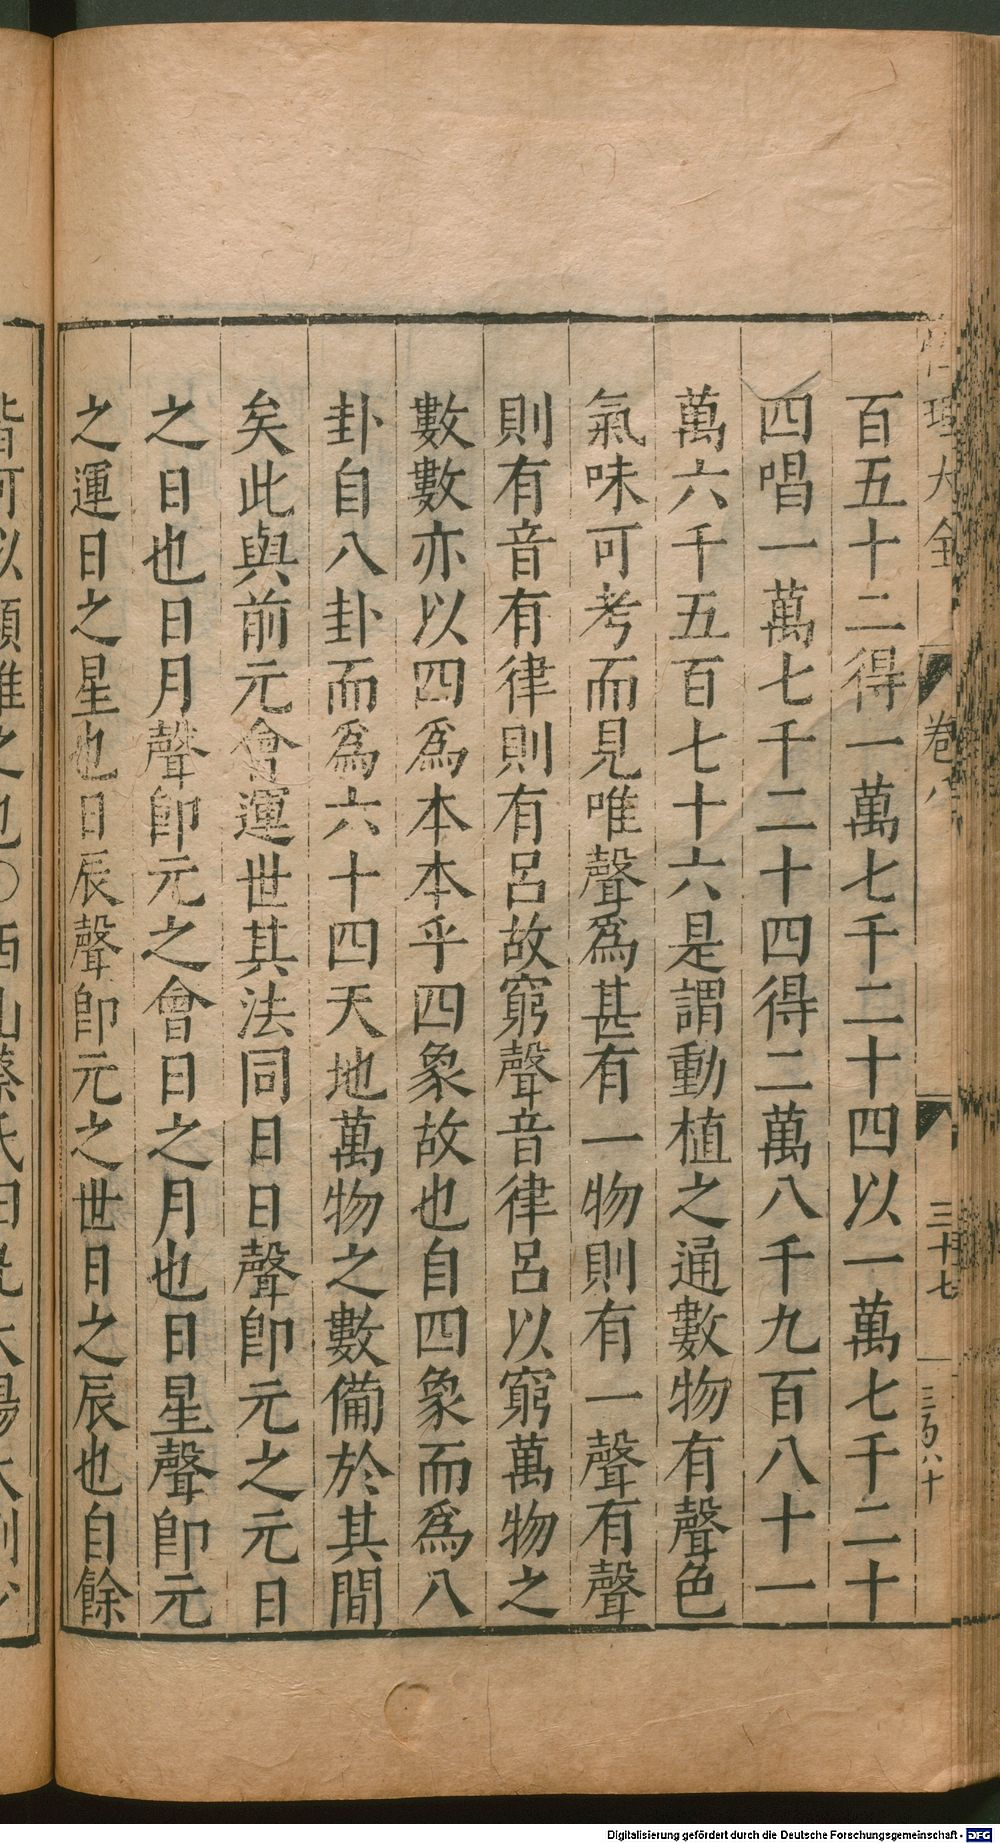 性理大全 卷八 三十七 三百八十
百五十二得一萬七千二十四以一萬七千二十
四唱一萬七千二十四得二萬八千九百八十一
萬六千五百七十六是謂動植之通數物有聲色
氣味可考而見唯聲爲甚有一物則有一聲有聲
則有音有律則有呂故窮聲音律呂以窮萬物之
數數亦以四爲本本乎四象故也自四象而爲八
卦自八卦而爲六十四天地萬物之數備於其間
矣此與前元會運世其法同日日聲卽元之元日
之日也日月聲卽元之會日之月也日星聲卽元
之運日之星也日辰聲卽元之世日之辰也自餘
皆可以類推之也○西山蔡氏曰
Digitalisierung gefördert durch die Deutsche Forschungsgemeinschaft - DFG